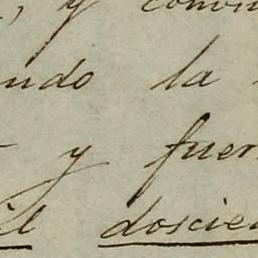 , y conv
ndo la
y fuer
il doscie